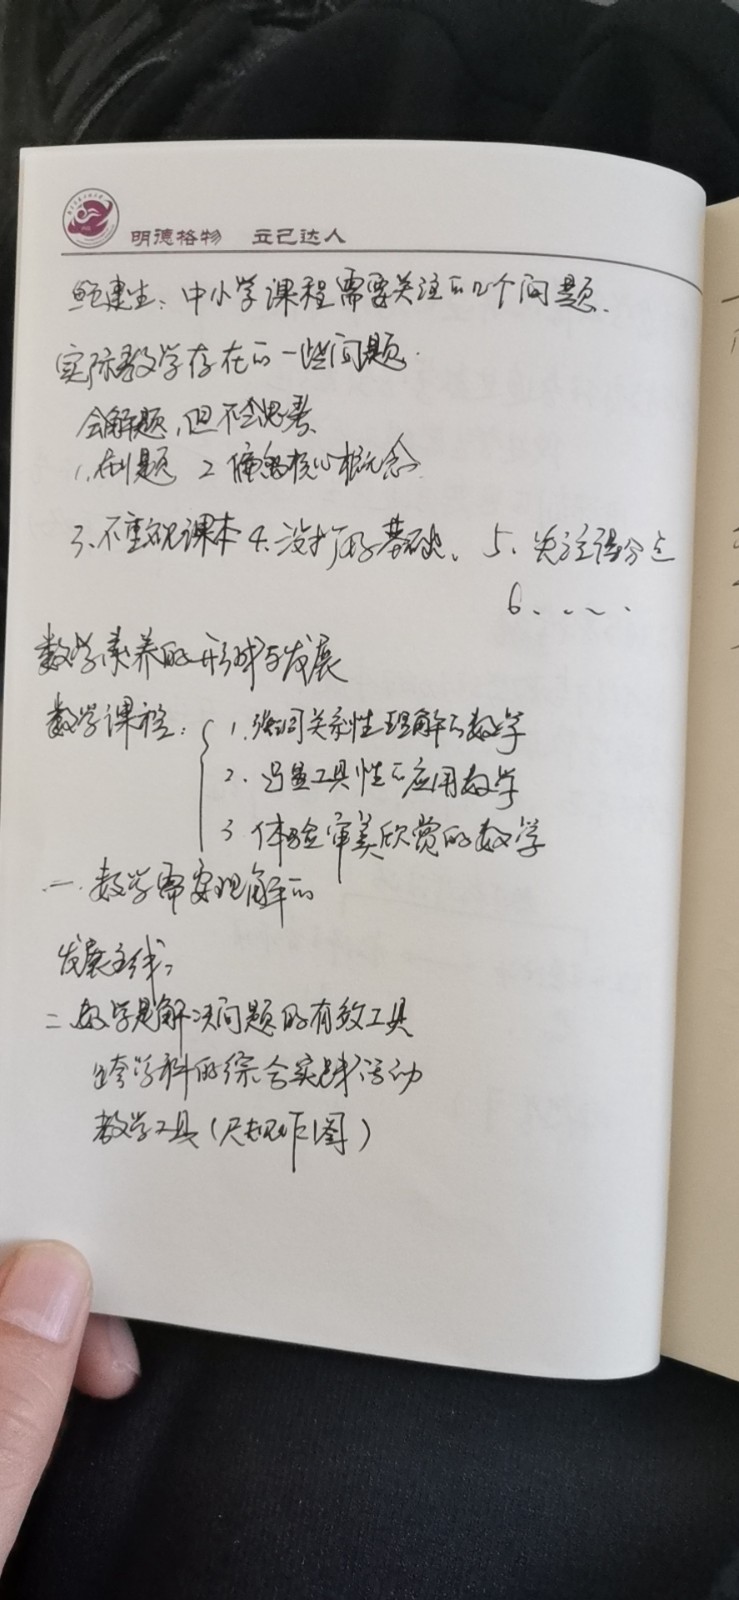 明德格物 立己达人
鲍建生：中小学课程需要关注的几个问题.
实际教学存在的一些问题.
会解题,但不会思考
1、刷题 2 偏离核心概念
3、不重视课本 4、没打好基础、 5、关注得分点
6、....
数学素养的形成与发展
数学课程：
1、强调关系性理解的数学
2、凸显工具性的应用数学
3、体验审美欣赏的数学
一、数学需要理解的
发展主线：
二、数学是解决问题的有效工具
跨学科的综合实践活动
数学工具(尺规作图)